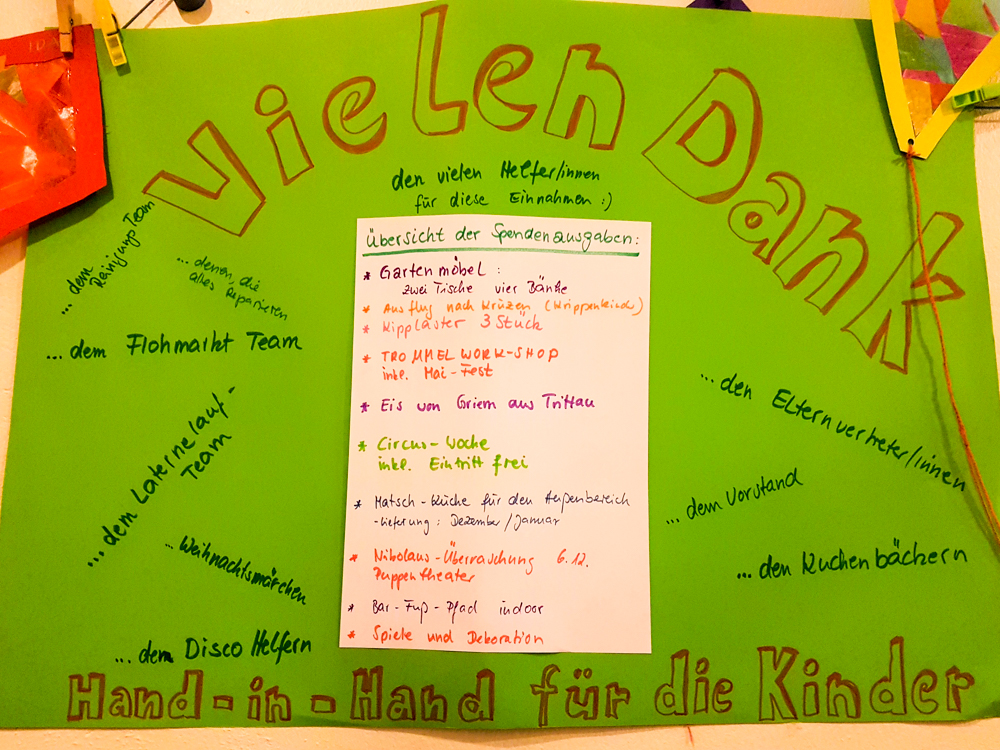 Vielen Dank
den vielen Helfer/innen
für diese Einnahmen :)
... dem
Reinigungs Team
... denen, die
alles Reparieren
... dem Flohmarkt Team
... dem Laternelauf-
Team
... Weihnachtsmärchen
... dem Disco Helfern
Übersicht der Spendenausgaben:
* Gartenmöbel :
zwei Tische vier Bänke
* Ausflug nach Krüzen (Krippenkinder)
* Kipplaster 3 Stück
* TROMMELWORK-SHOP
inkl. Mai-Fest
* Eis von Griem aus Trittau
* Circus-Woche
inkl. Eintritt frei
* Matsch-Küche für den Außenbereich
-Lieferung: Dezember/Januar
* Nikolaus-Überraschung 6.12.
Puppentheater
* Bar-Fuß-Pfad indoor
* Spiele und Dekoration
... den Elternvertreter/innen
... dem Vorstand
... den Kuchenbäckern
Hand-in-Hand für die Kinder